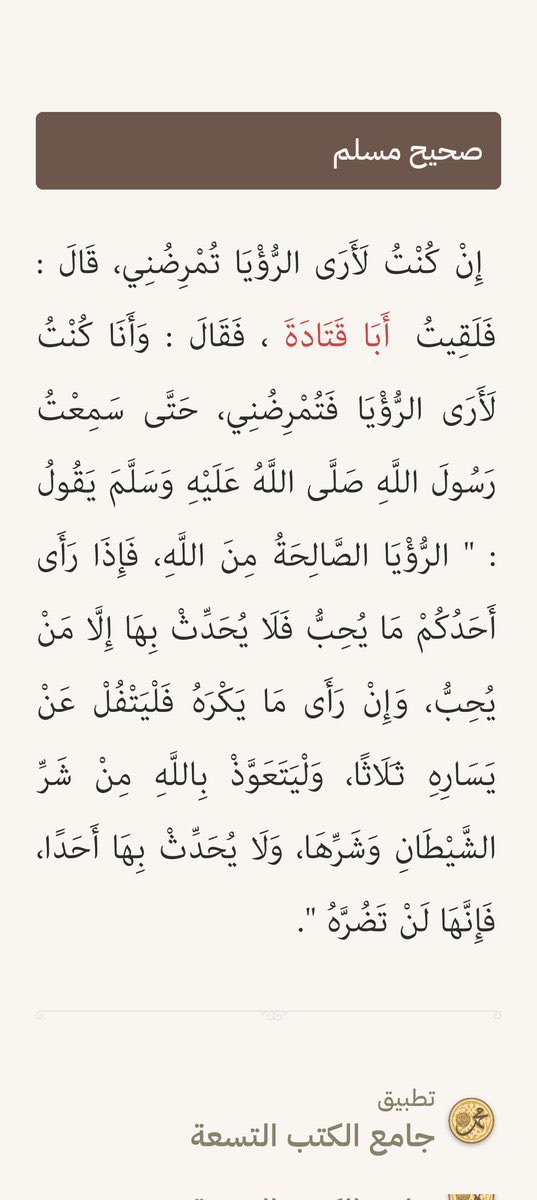 صحيح مسلم
إِنْ كُنْتُ لَأَرَى الرُّؤْيَا تُمْرِضُنِي، قَالَ :
فَلَقِيتُ أَبَا قَتَادَةَ ، فَقَالَ : وَأَنَا كُنْتُ
لَأَرَى الرُّؤْيَا فَتُمْرِضُنِي، حَتَّى سَمِعْتُ
رَسُولَ اللَّهِ صَلَّى اللَّهُ عَلَيْهِ وَسَلَّمَ يَقُولُ
: " الرُّؤْيَا الصَّالِحَةُ مِنَ اللَّهِ، فَإِذَا رَأَى
أَحَدُكُمْ مَا يُحِبُّ فَلَا يُحَدِّثْ بِهَا إِلَّا مَنْ
يُحِبُّ، وَإِنْ رَأَى مَا يَكْرَهُ فَلْيَتْفُلْ عَنْ
يَسَارِهِ ثَلَاثًا، وَلْيَتَعَوَّذْ بِاللَّهِ مِنْ شَرِّ
الشَّيْطَانِ وَشَرِّهَا، وَلَا يُحَدِّثْ بِهَا أَحَدًا،
فَإِنَّهَا لَنْ تَضُرَّهُ ".
تطبيق
جامع الكتب التسعة